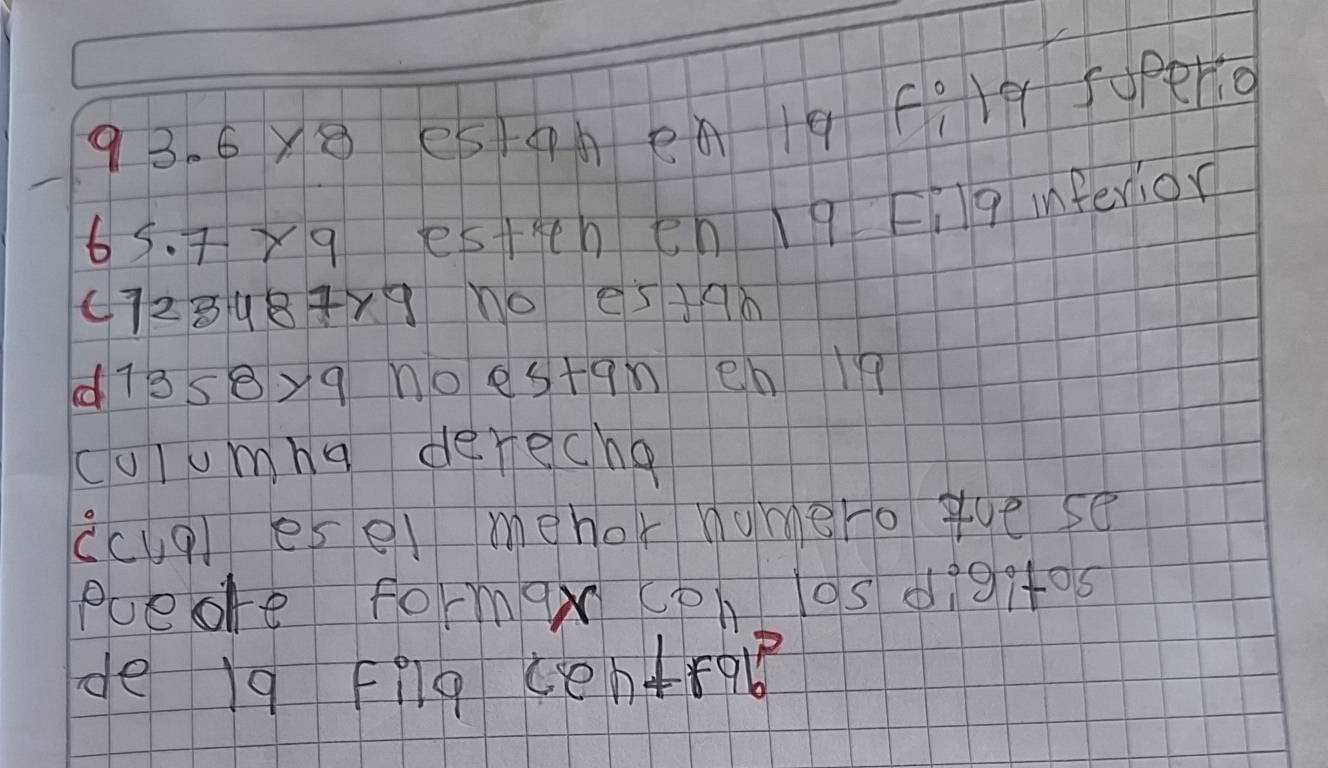 a 3.6 y 8 estan en la Fila superio
b 5.7 y 9 estan en la Fila inferior
c 1 2 3 4 8 7 y 9 no estan
d 1 3 5 8 y 9 no estan en la
columna derecha
¿cual es el menor numero que se
puede formar con los digitos
de la Fila central?